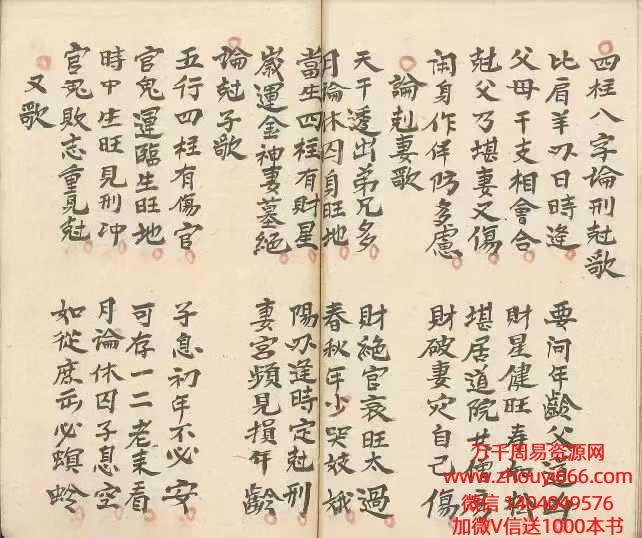 四柱八字論刑尅歌
比肩羊刃日時逢 要问年齡父這
父母干支相會合 財星健旺壽如松
尅父乃堪妻又傷 堪居道院廿僧房
閑身作伴防多慮 財破妻灾自己傷
論剋妻歌
天干透出弟兄多 財絕官衰旺太過
月論休囚身旺地 春秋年少哭姣娥
當生四柱有財星 陽刃逢時定尅刑
歲運金神妻墓絕 妻宮頻見損年齡
論尅子歌
五行四柱有傷官 子息初年不必安
官鬼運臨生旺地 可存一二老来看
時中生旺見刑冲 月論休囚子息空
官鬼敗志重見尅 如從庶出必螟蛉
又歌
万千周易资源网
www.zhouyi666.com
微信 1404049576
加微V信送1000本书